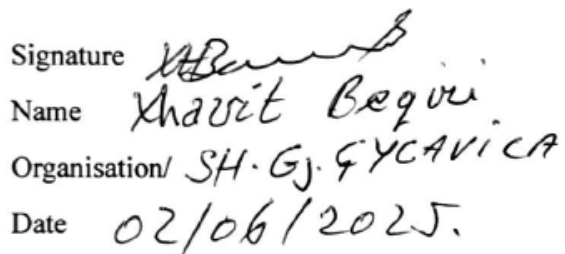 Signature
Name Xhavit Beqiri
Organisation/ SH. Gj. ÇYCAVICA
Date 02/06/2025.